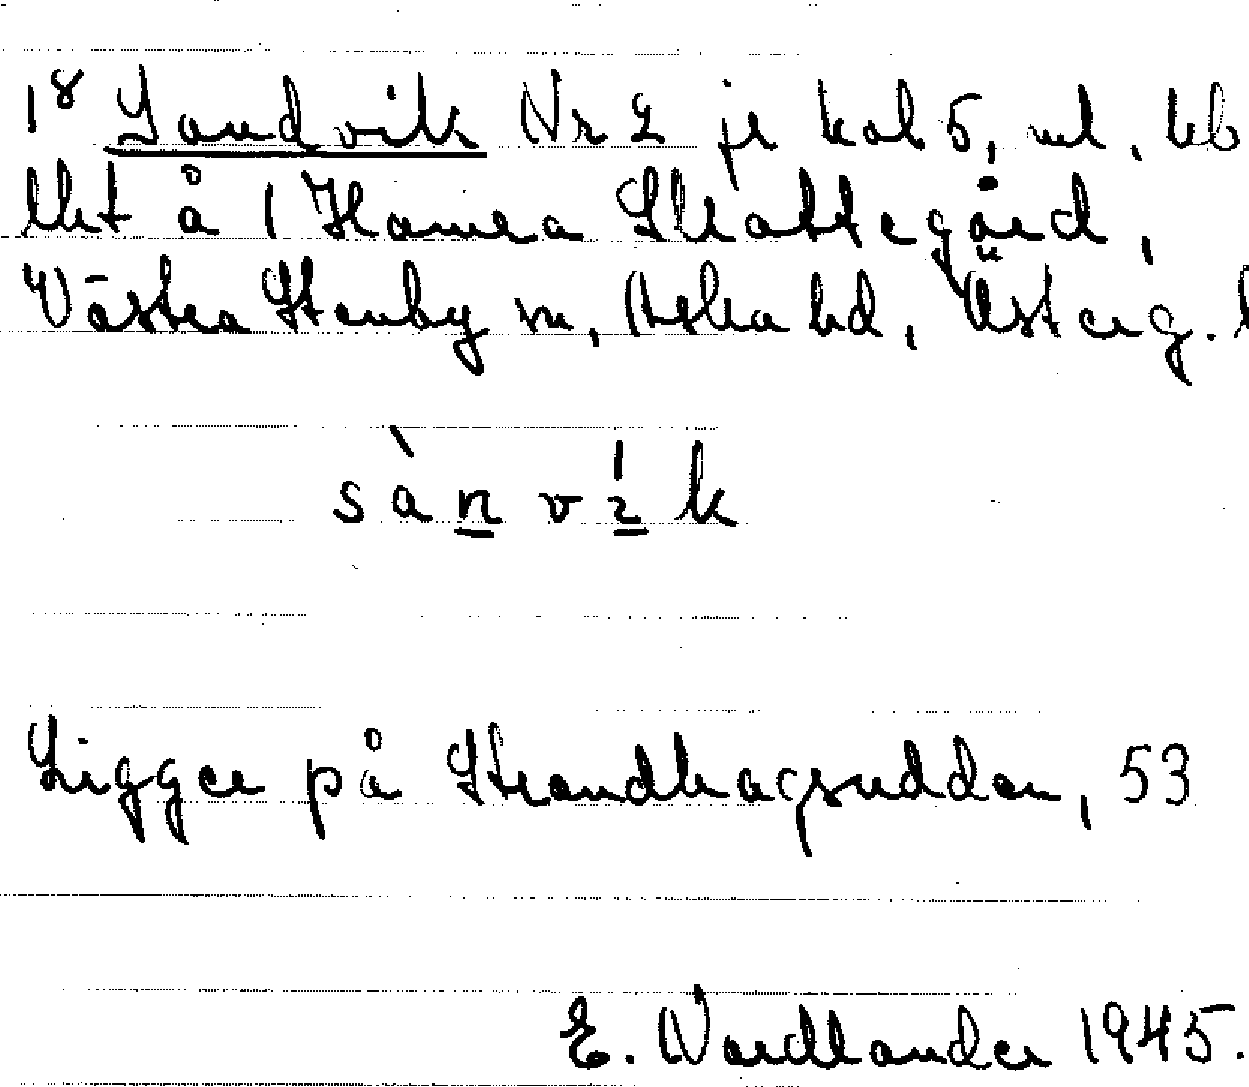 1⁸ Sandvik Nr 2 jr kol 5, ul, bb
lht å 1 Hamra Skattegård,
Västra Stenby sn, Aska hd, Österg. l
sànvı́k
Ligger på Strandhagsudden, 53
E. Nordlander 1945.